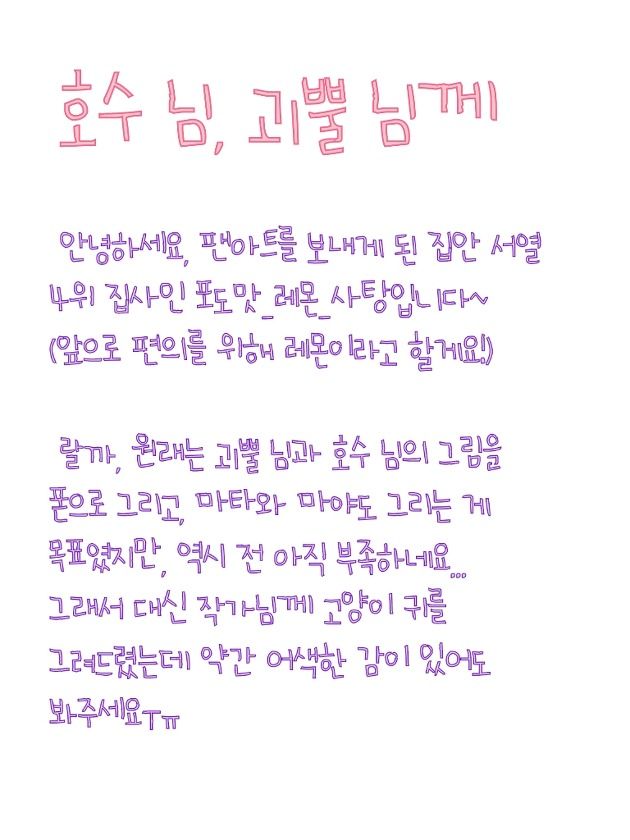 호수 님, 괴뿔 님께
안녕하세요, 팬아트를 보내게 된 집안 서열
4위 집사인 포도맛_레몬_사탕입니다~
(앞으로 편의를 위해 레몬이라고 할게요!)
랄까, 원래는 괴뿔 님과 호수 님의 그림을
폰으로 그리고, 마타와 마야도 그리는 게
목표였지만, 역시 전 아직 부족하네요...
그래서 대신 작가님께 고양이 귀를
그려드렸는데 약간 어색한 감이 있어도
봐주세요ㅜㅠ